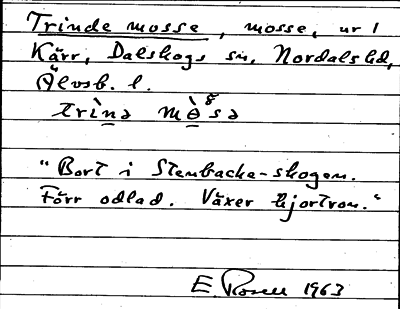 Trinde mosse, mosse, ur 1
Kärr, Dalskogs sn, Nordals hd,
Älvsb. l.
trìnə mò̀sə
"Bort i Stenbacka-skogen.
Förr odlad. Växer hjortron."
E. Rosell 1963